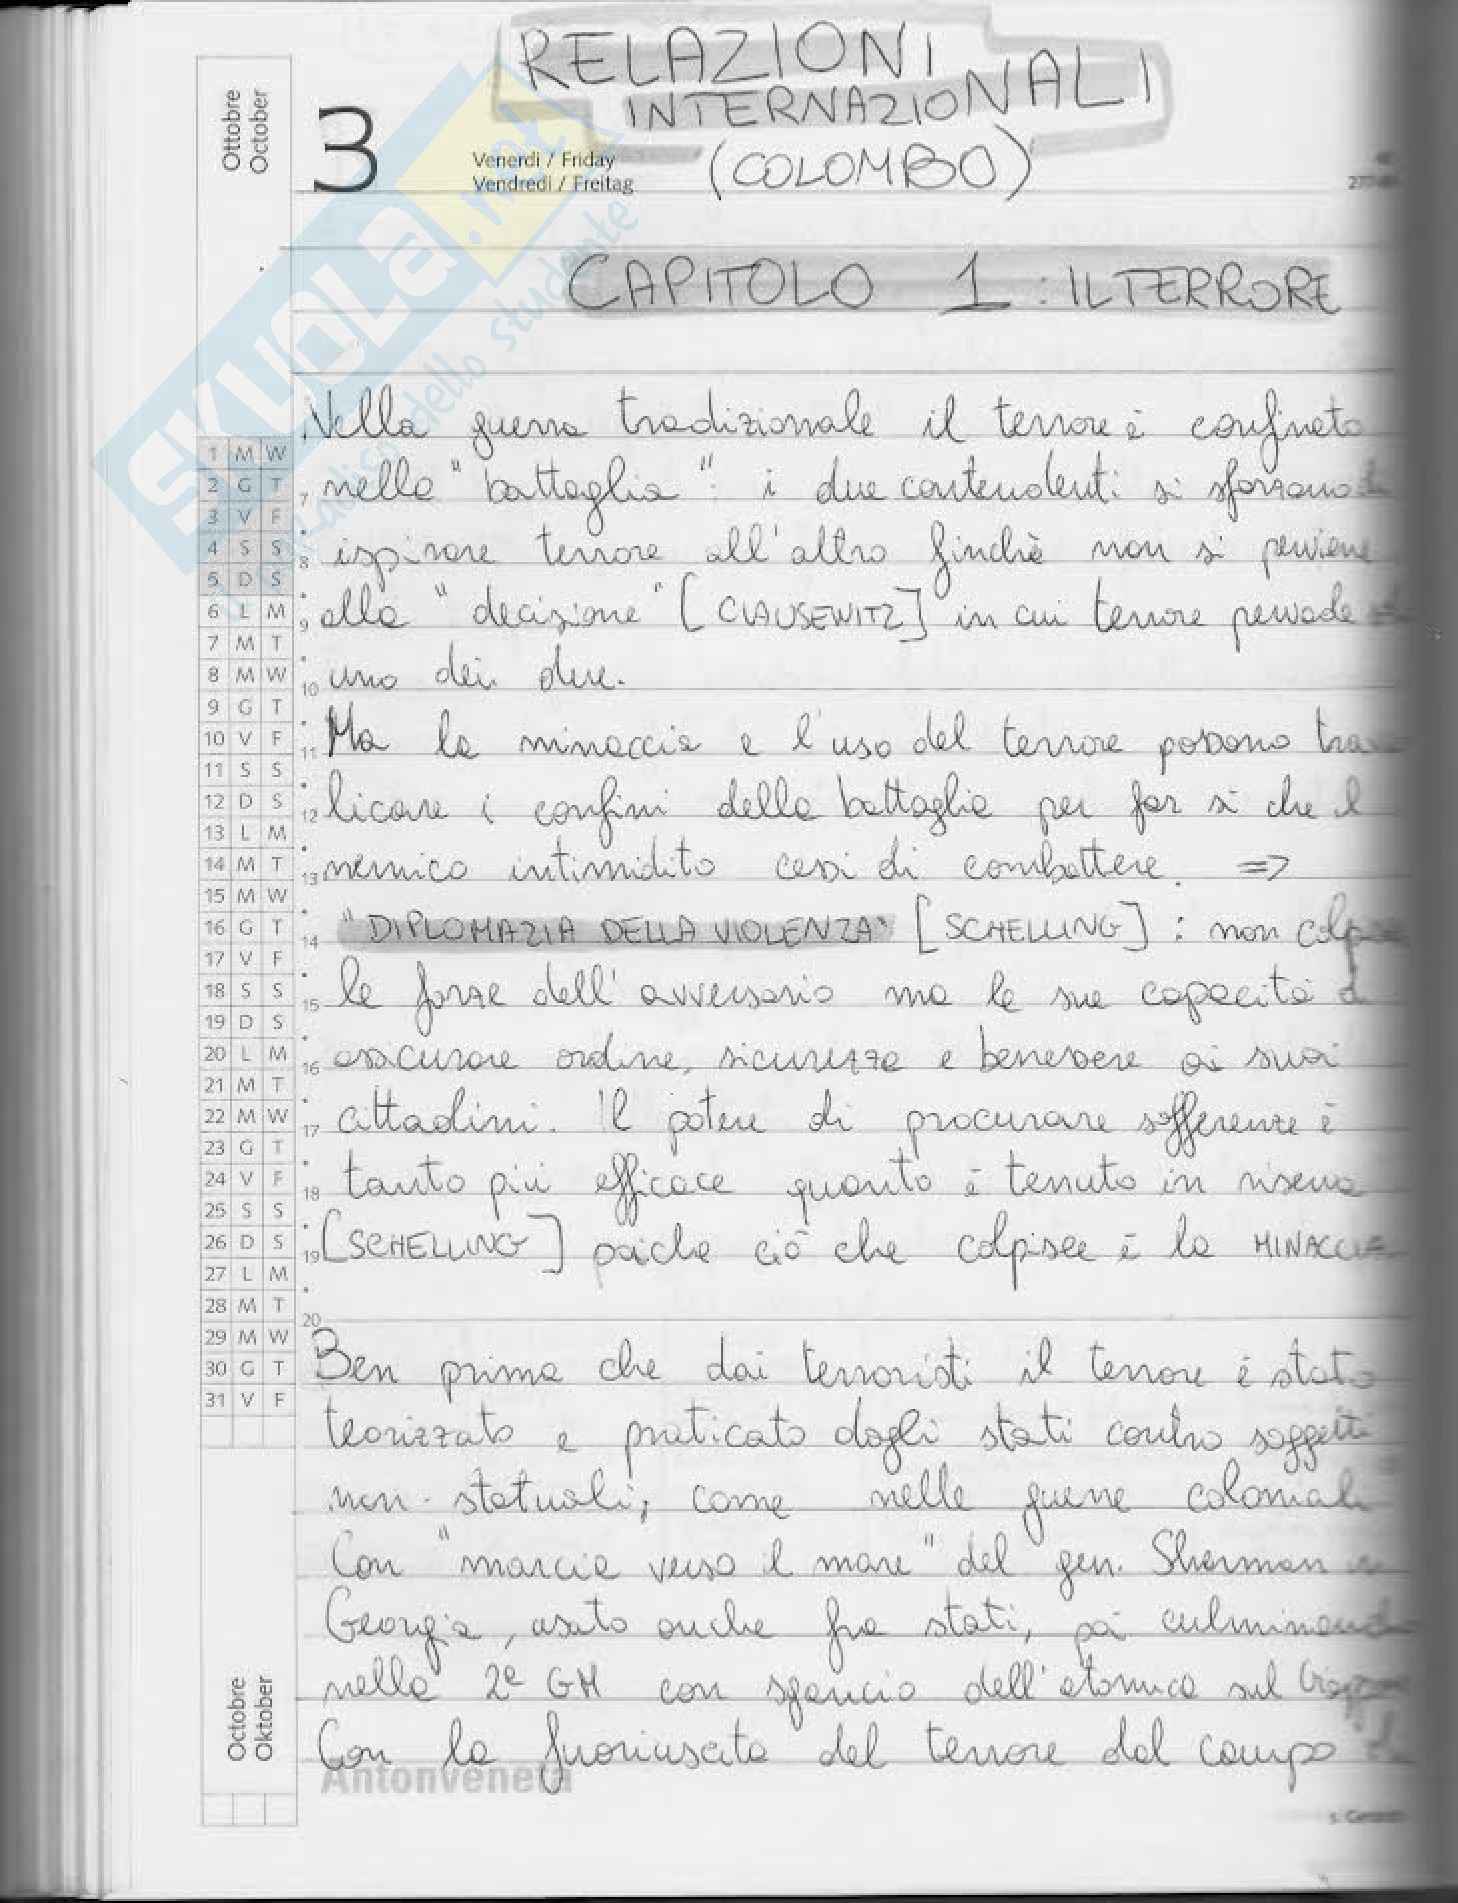 RELAZIONI
INTERNAZIONALI
(COLOMBO)
Ottobre
October
3
Venerdì / Friday
Vendredi / Freitag
SKUOLA.net
dello studente
CAPITOLO 1 : IL TERRORE
Nella guerra tradizionale il terrore è confinato
nella "battaglia": i due contendenti si sforzano di
ispirare terrore all'altro finchè non si perviene
alla "decisione" [CLAUSEWITZ] in cui terrore pervade
uno dei due.
Ma la minaccia e l'uso del terrore possono trava
licare i confini della battaglia per far sì che il
nemico intimidito cessi di combattere. =>
"DIPLOMAZIA DELLA VIOLENZA" [SCHELLING] : non colpire
le forze dell'avversario ma le sue capacità di
assicurare ordine, sicurezza e benessere ai suoi
cittadini. Il potere di procurare sofferenze è
tanto più efficace quanto è tenuto in riserva
[SCHELLING] poiche ciò che colpisce è la MINACCIA
Ben prima che dai terroristi il terrore è stato
teorizzato e praticato dagli stati contro soggetti
non-statuali, come nelle guerre coloniali
Con "marcia verso il mare" del gen. Sherman in
Georgia, usato anche fra stati, poi culminando
nella 2ª GM con sgancio dell'atomica sul Giappone
Con la fuoriuscita del terrore dal campo di
1 M W
2 G T
3 V F
4 S S
5 D S
6 L M
7 M T
8 M W
9 G T
10 V F
11 S S
12 D S
13 L M
14 M T
15 M W
16 G T
17 V F
18 S S
19 D S
20 L M
21 M T
22 M W
23 G T
24 V F
25 S S
26 D S
27 L M
28 M T
29 M W
30 G T
31 V F
7
8
9
10
11
12
13
14
15
16
17
18
19
20
Octobre
Oktober
Antonveneta